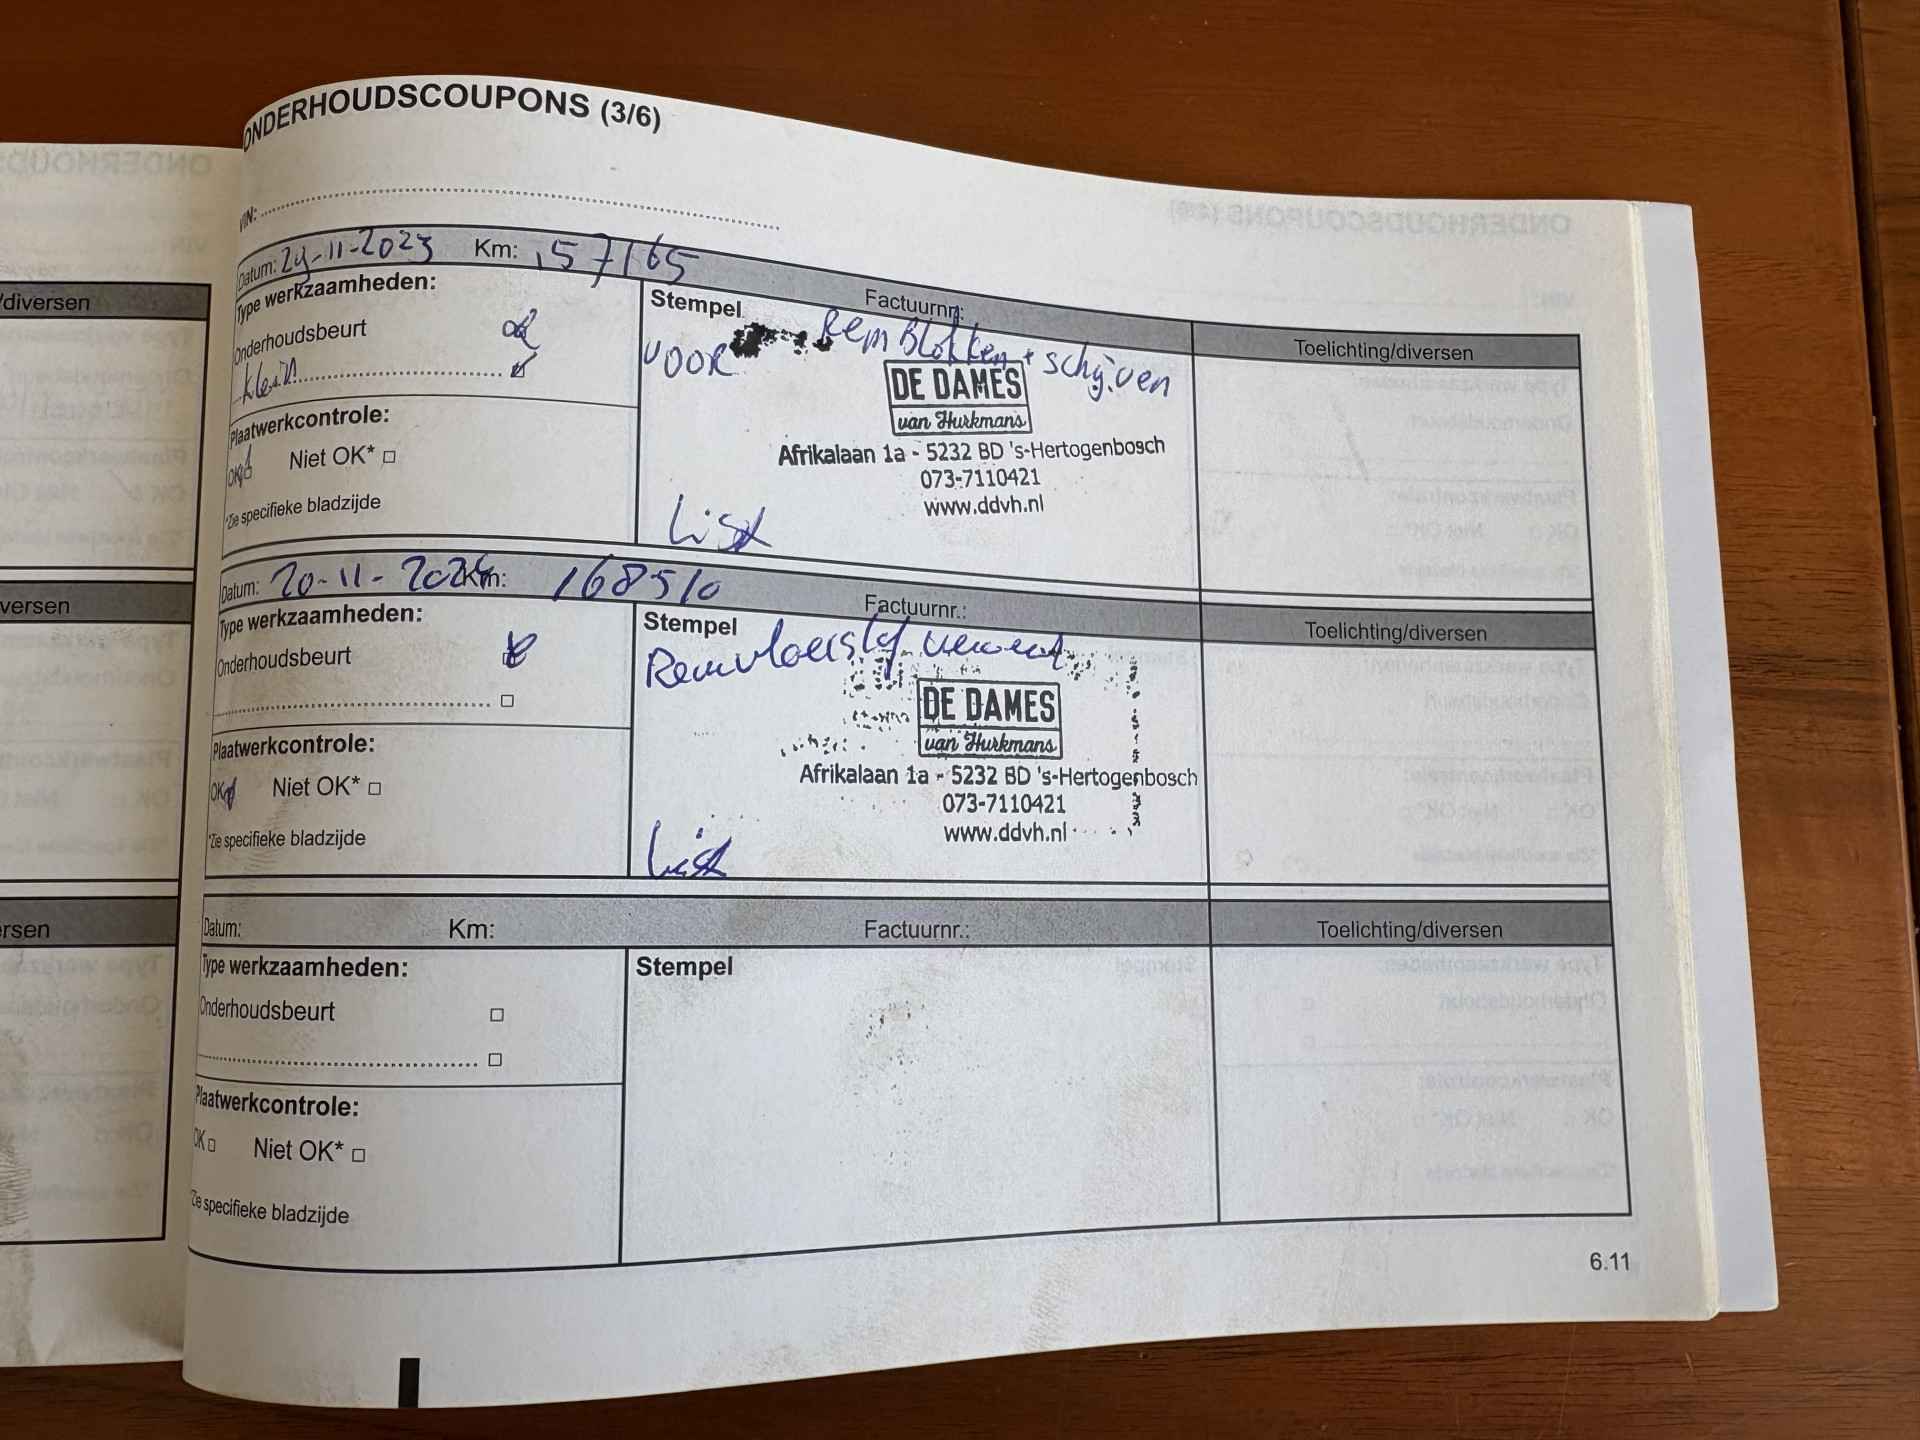 ONDERHOUDSCOUPONS (3/6)
VIN:
Datum: 29-11-2023 Km: 157165 Factuurnr.:
Toelichting/diversen
Type werkzaamheden:
Onderhoudsbeurt
Klein
Plaatwerkcontrole:
OK Niet OK*
*Zie specifieke bladzijde
Stempel
VOOR RemBlokken + schijven
DE DAMES
van Hurkmans
Afrikalaan 1a - 5232 BD 's-Hertogenbosch
073-7110421
www.ddvh.nl
Datum: 20-11-2024 Km: 168510 Factuurnr.:
Toelichting/diversen
Type werkzaamheden:
Onderhoudsbeurt
Plaatwerkcontrole:
OK Niet OK*
*Zie specifieke bladzijde
Stempel
Remvloeistof ververst
DE DAMES
van Hurkmans
Afrikalaan 1a - 5232 BD 's-Hertogenbosch
073-7110421
www.ddvh.nl
Datum: Km: Factuurnr.: Toelichting/diversen
Type werkzaamheden:
Onderhoudsbeurt
Plaatwerkcontrole:
OK Niet OK*
*Zie specifieke bladzijde
Stempel
6.11
/diversen
versen
ersen